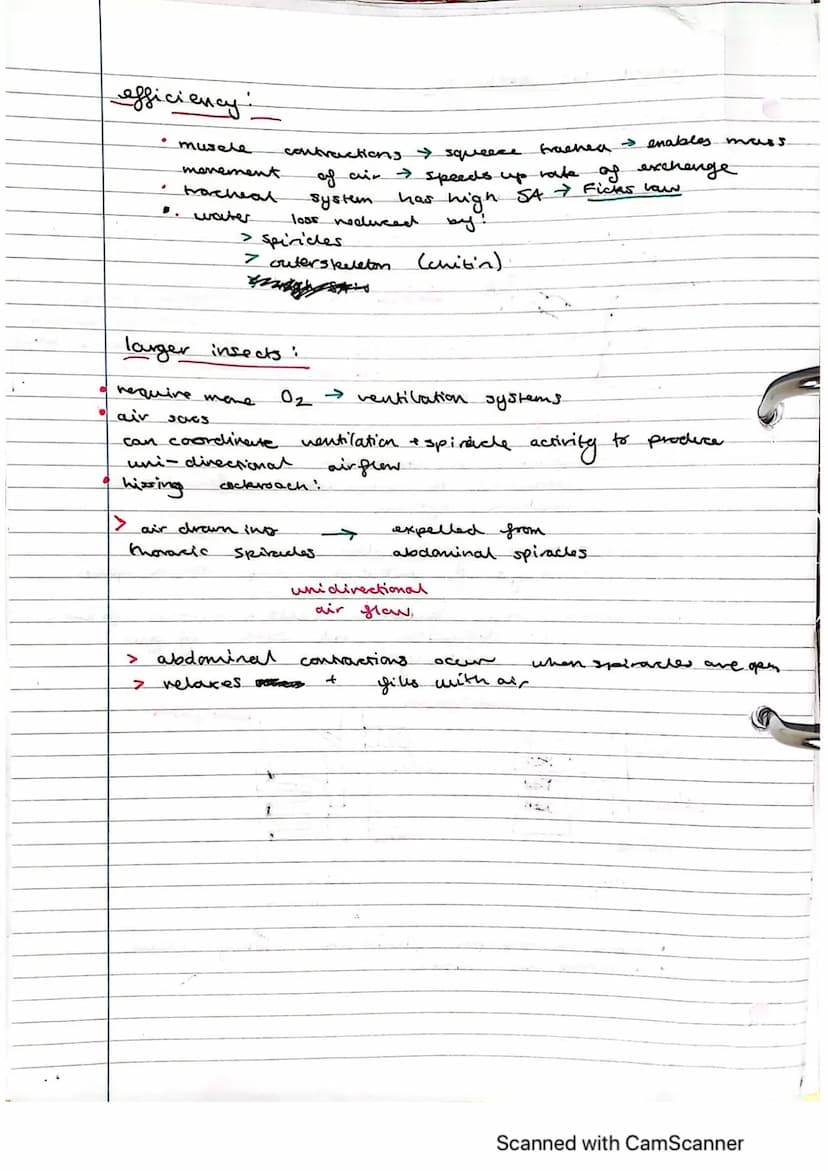 efficiency:
• muscle contractions → squeeze trachea → enables mass
movement of air → speeds up rate of exchange
• tracheal system has high SA → Ficks law
• water loss reduced by:
> spiricles
> outerskeleton (chitin)
larger insects:
• require more O2 → ventilation systems
• air sacs
can coordinate ventilation + spiracle activity to produce
uni-directional airflow
• hissing cockroach:
> air drawn into → expelled from
thoracic spiracles abdominal spiracles
unidirectional
air flow
> abdominal contractions occur when spiracles are open
> relaxes + fills with air
Scanned with CamScanner